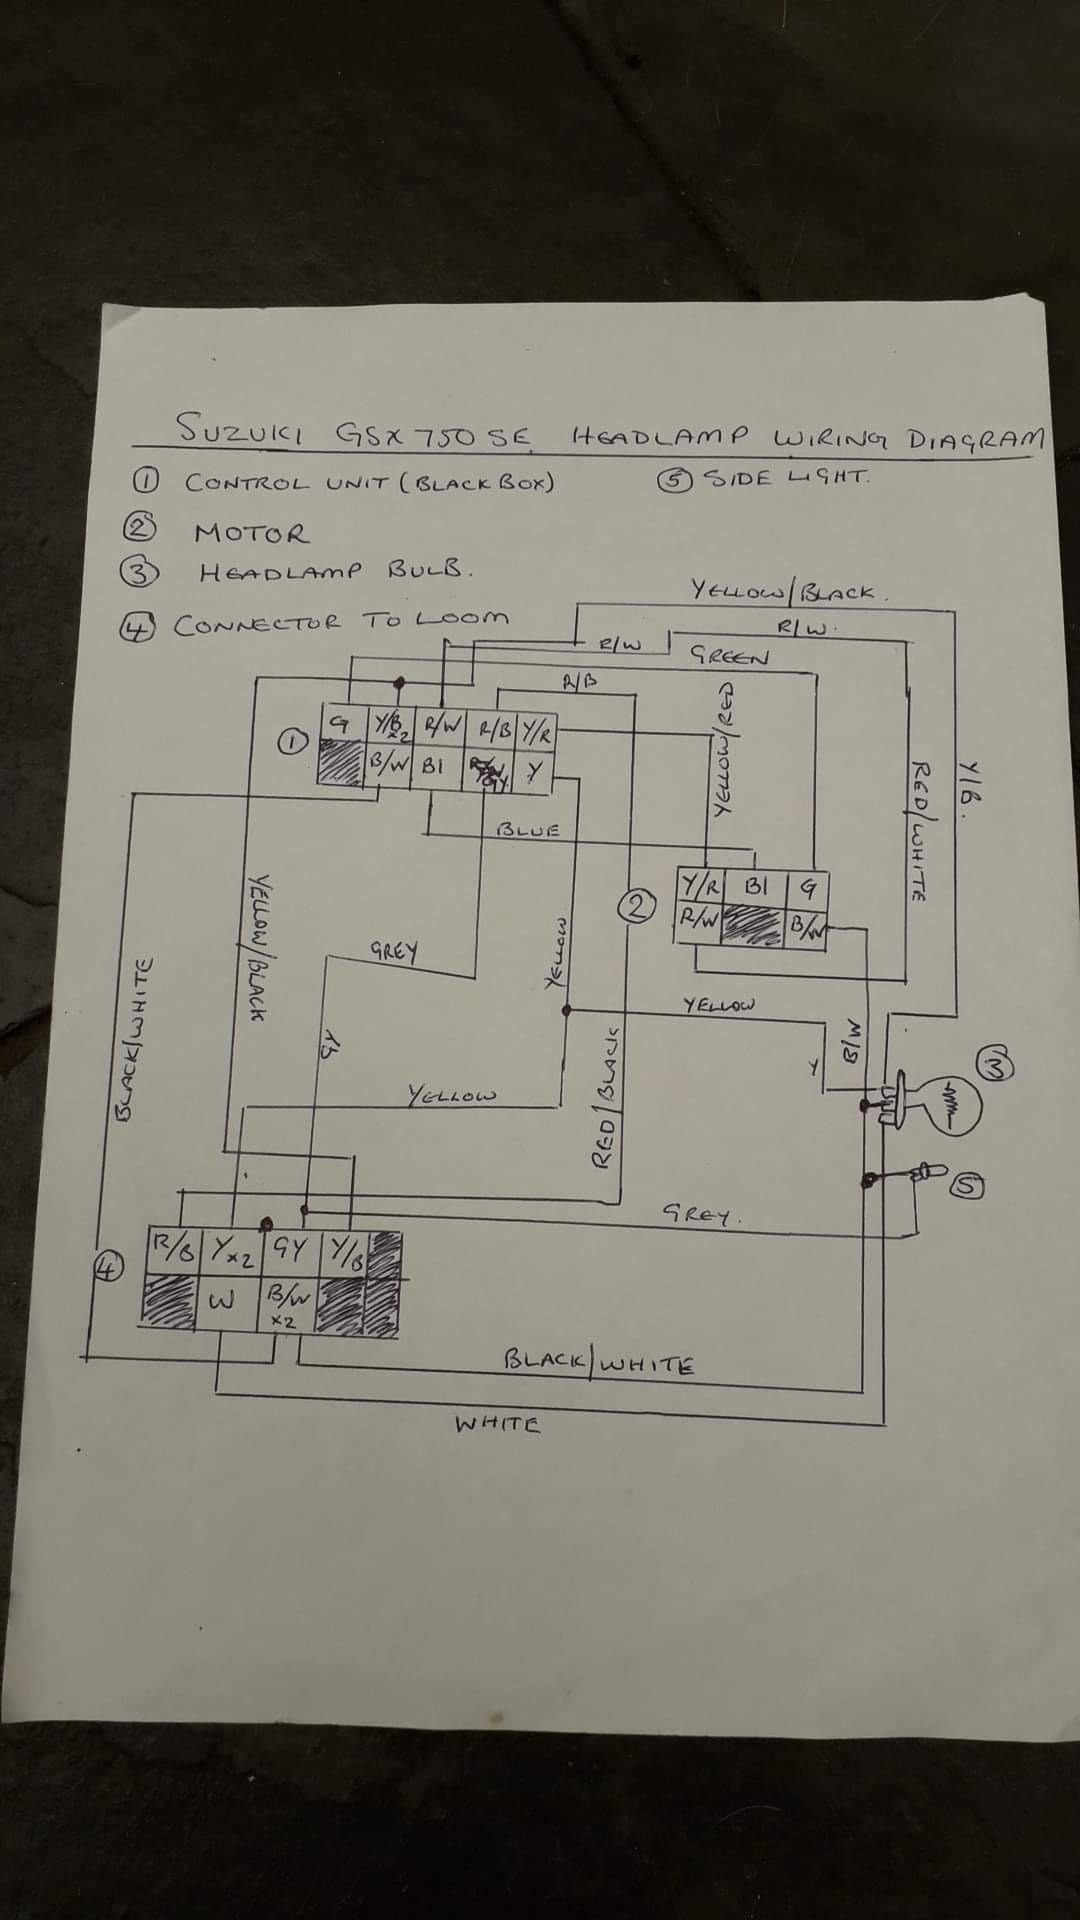 SUZUKI GSX 750 SE HEADLAMP WIRING DIAGRAM
① CONTROL UNIT (BLACK BOX)
⑤ SIDE LIGHT.
② MOTOR
③ HEADLAMP BULB.
④ CONNECTOR TO LOOM
YELLOW/BLACK.
R/W
R/W.
GREEN
R/B
①
G Y/B x2 R/W R/B Y/R
B/W Bl GY Y
YELLOW/RED
RED/WHITE
Y/B.
BLUE
②
Y/R Bl G
R/W B/W
YELLOW/BLACK
BLACK/WHITE
GREY
GY
YELLOW
YELLOW
Y
B/W
③
YELLOW
RED/BLACK
⑤
GREY.
④
R/B Yx2 GY Y/B
W B/W x2
BLACK/WHITE
WHITE